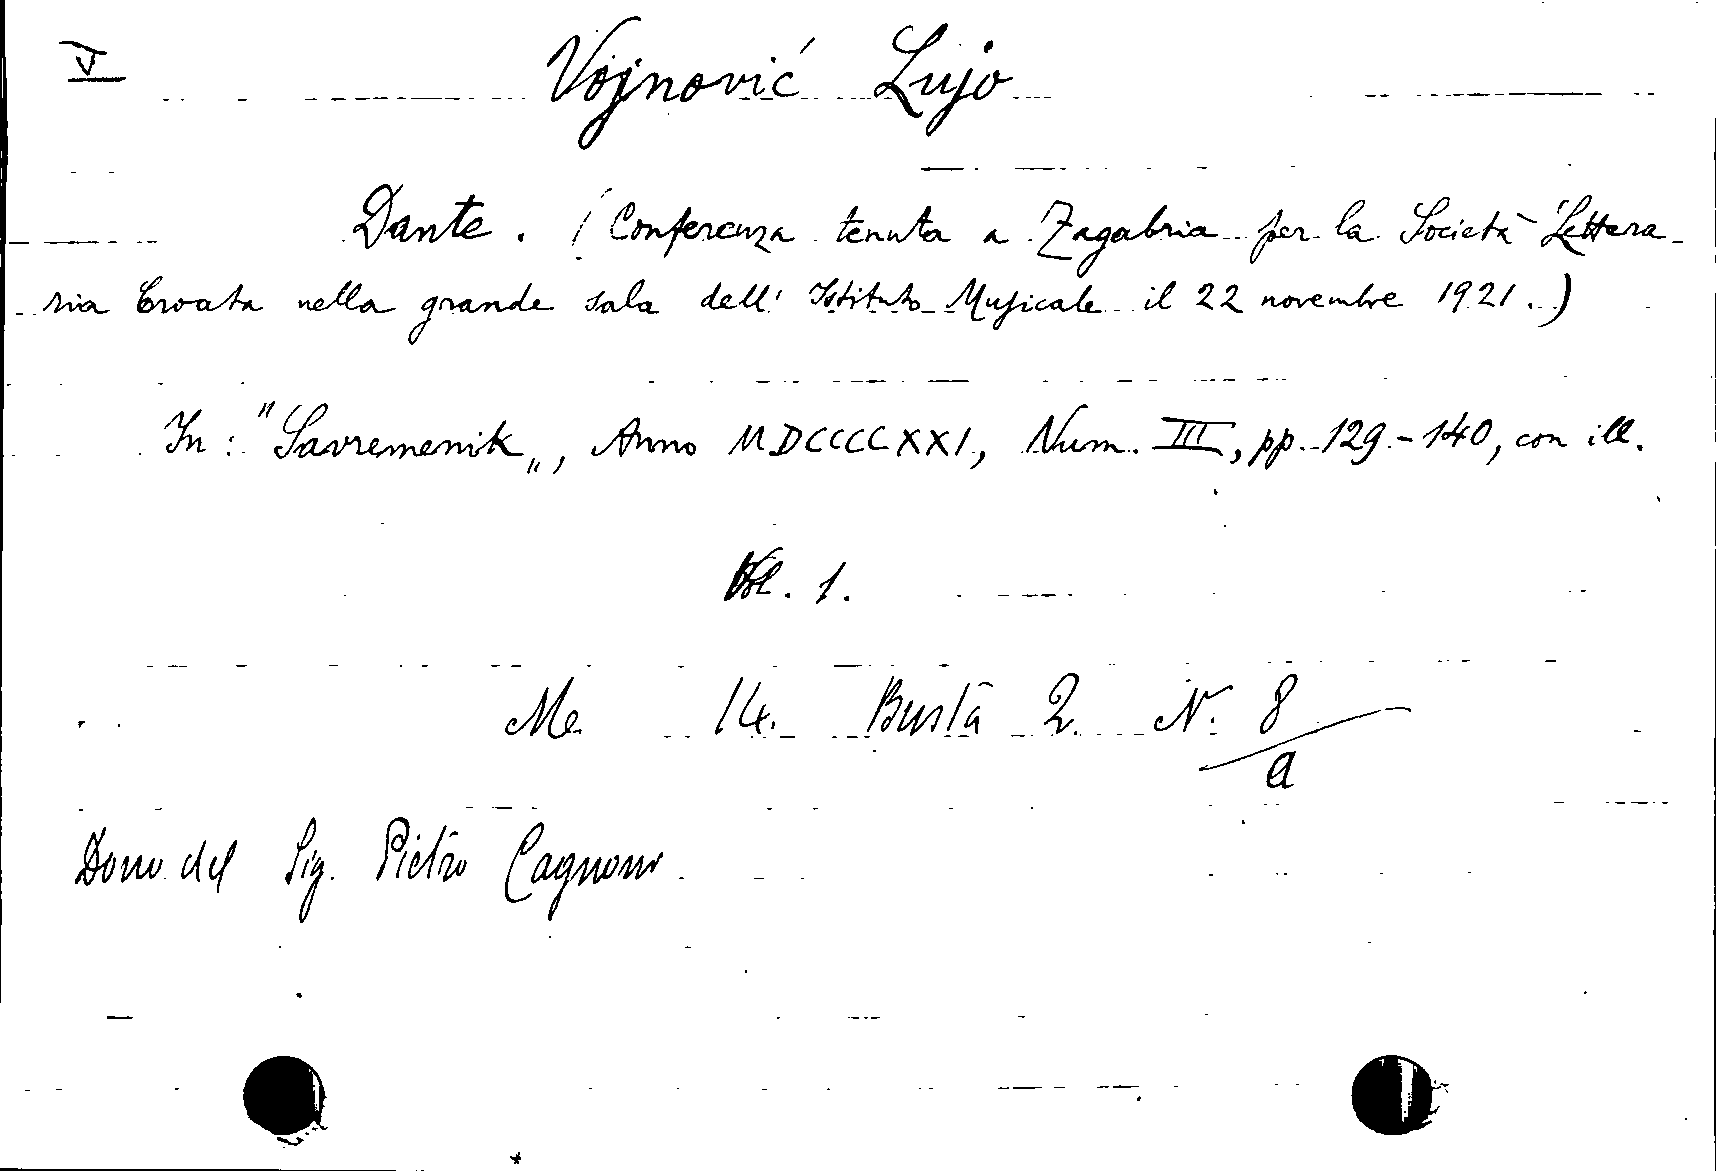 V
Vojnović Lujo
Dante. (Conferenza tenuta a Zagabria per la Società Lettera-
ria Croata nella grande sala dell' Istituto Musicale il 22 novembre 1921.)
In: "Savremenik„, Anno MDCCCCXXI, Num. III, pp. 129-140, con ill.
Vol. 1.
Me 14. Busta 2. N. 8/a
Dono del Sig. Pietro Cagnoni